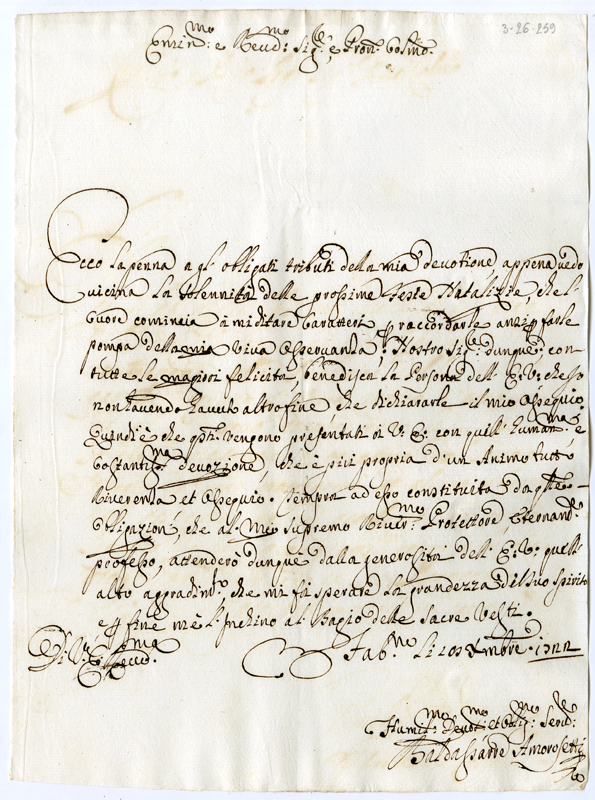 3-26-259
Emin: mo e Reud: mo Sig: re e Pron Colmo.
Ecco la penna a gl'obligati tributi della mia devotione appena uedo
uicina la solennità delle prossime feste Natalizie, che l'
Cuore comincia à miditare Caratteri p raccordarle anzi p farle
pompa della mia viva Osservanza: Nostro Sig: dunque con
tutte le magiori felicità, benedisca la Persona dell'E: V: ch'esso
non hauendo altro fine che dichiararle il mio Ossequio
Quindi è che qsti vengono presentati à V: E: con quell'humanma: e
Costantisma: devozione, che è più propria d'un Animo tutto
Riverenza et Ossequio. Sempra ad esso constituita da
obligazioni, che al Mio supremo River:mo Protectore
professo, attenderò dunque dalla generosità dell'E: V: quell'
alto aggradimto, che mi fà sperare la grandezza del suo spirito
e p fine m'è l'Inchino al Bagio delle sacre Vesti.
Di V: E:
Fabno li 10 Xmbre 1722
Humil:mo Devot:mo et Oblig:mo Serud:re
Baldassarre Amorosetti